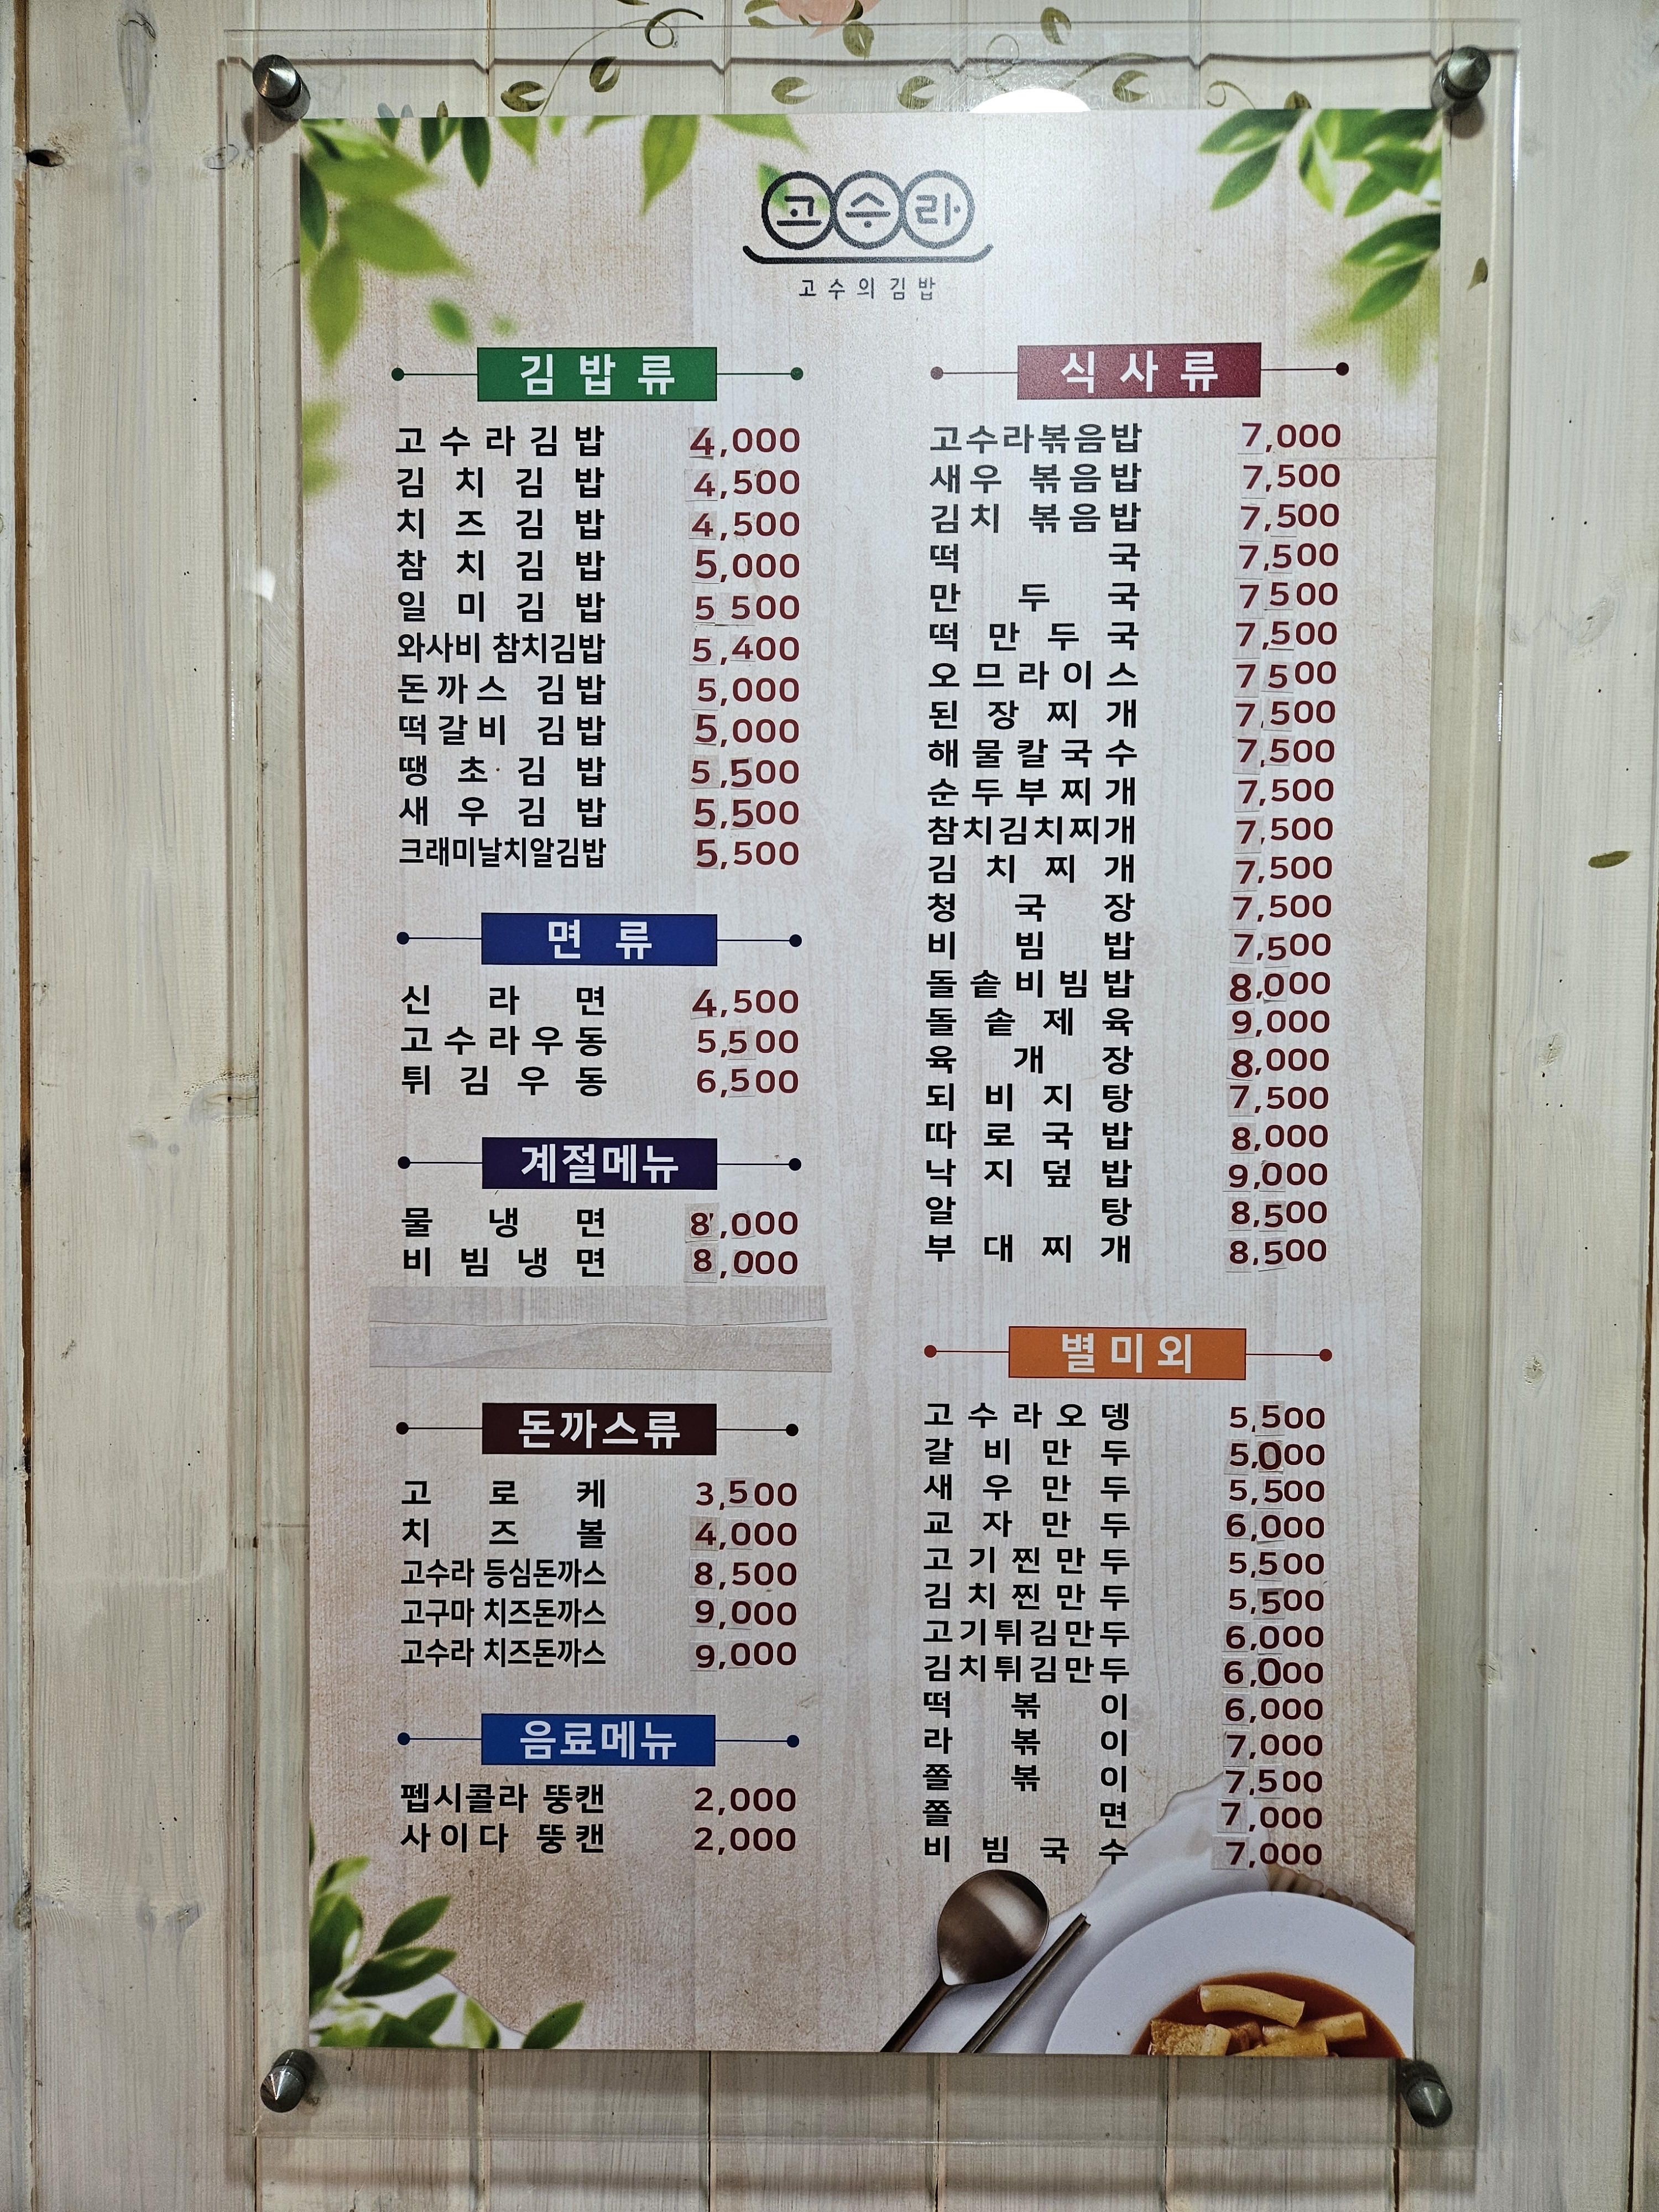 고수라
고수의김밥
김밥류
고수라김밥 4,000
김치김밥 4,500
치즈김밥 4,500
참치김밥 5,000
일미김밥 5 500
와사비 참치김밥 5,400
돈까스 김밥 5,000
떡갈비 김밥 5,000
땡초김밥 5,500
새우김밥 5,500
크래미날치알김밥 5,500
면류
신라면 4,500
고수라우동 5,500
튀김우동 6,500
계절메뉴
물냉면 8,000
비빔냉면 8,000
돈까스류
고로케 3,500
치즈볼 4,000
고수라 등심돈까스 8,500
고구마 치즈돈까스 9,000
고수라 치즈돈까스 9,000
음료메뉴
펩시콜라 뚱캔 2,000
사이다 뚱캔 2,000
식사류
고수라볶음밥 7,000
새우 볶음밥 7,500
김치 볶음밥 7,500
떡국 7,500
만두국 7 500
떡만두국 7,500
오므라이스 7 500
된장찌개 7,500
해물칼국수 7,500
순두부찌개 7,500
참치김치찌개 7,500
김치찌개 7,500
청국장 7,500
비빔밥 7,500
돌솥비빔밥 8,000
돌솥제육 9,000
육개장 8,000
되비지탕 7,500
따로국밥 8,000
낙지덮밥 9,000
알탕 8,500
부대찌개 8,500
별미외
고수라오뎅 5,500
갈비만두 5,000
새우만두 5,500
교자만두 6,000
고기찐만두 5,500
김치찐만두 5,500
고기튀김만두 6,000
김치튀김만두 6,000
떡볶이 6,000
라볶이 7,000
쫄볶이 7,500
쫄면 7,000
비빔국수 7,000